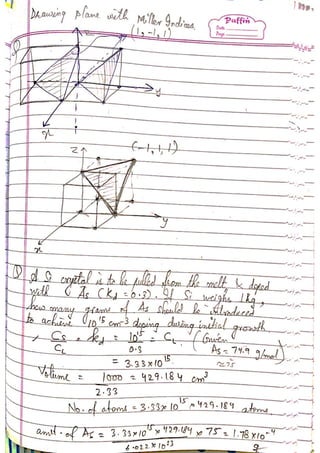 Drawing plane with Miller Indices
(1, -1, 1)
Puffin
Date
Page
y
x
z
(-1, 1, 1)
y
x
Q A Si crystal is to be pulled from the melt & doped
with As (Kd = 0.3). If Si weighs 1kg,
how many grams of As should be introduced
to achieve 10^15 cm^-3 doping during initial growth
Cs/CL = Kd, 10^15/0.3 = CL. (Given
As = 74.9 g/mol)
= 3.33×10^15 ≈75
Volume = 1000/2.33 = 429.184 cm^3
No. of atoms = 3.33×10^15 × 429.184 atoms.
amt. of As = 3.33×10^15 × 429.184 × 75/6.022×10^23 = 1.78×10^-4 g